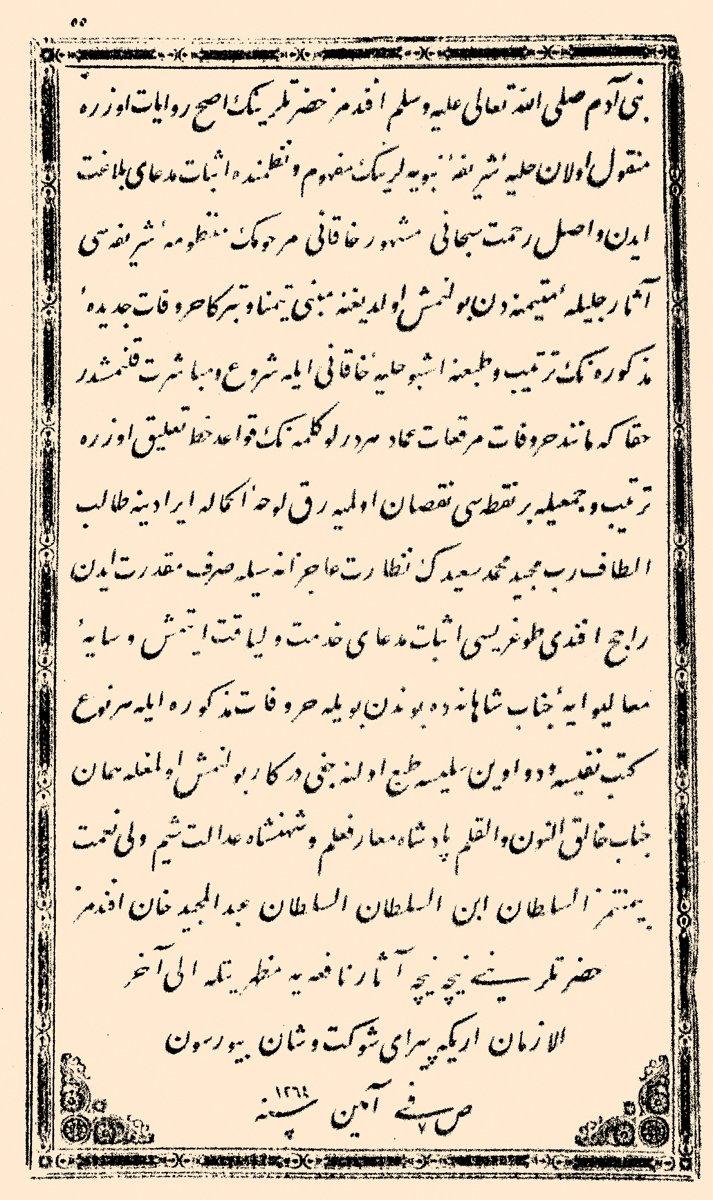 ٥٥
بنی آدم صلی الله تعالی علیه وسلم افندمز حضرتلرینك اصح روایات اوزره
منقول اولان حلیهٔ شریفهٔ نبویه لرینك مفهوم ونظمنده اثبات مدعای بلاغت
ایدن واصل رحمت سبحانی مشهور خاقانی مرحومك منظومهٔ شریفه سی
آثار جلیلهٔ متیمنه دن بولنمش اولدیغنه مبنی تیمنا وتبرکا حروفات جدیدهٔ
مذکوره نك ترتیب وطبعنه اشبو حلیهٔ خاقانی ایله شروع ومباشرت قلنمشدر
حقا که مانند حروفات مرقعات عماد هر درلو کلمه نك قواعد خط تعلیق اوزره
ترتیب وجمعیله بر نقطه سی نقصان اولمیه رق لوحهٔ اکماله ایرادینه طالب
الطاف رب مجید محمد سعیدك نظارت عاجزانه سیله صرف مقدرت ایدن
راجح افندی طوغریسی اثبات مدعای خدمت ولیاقت ایتمش وسایهٔ
معالیوایهٔ جناب شاهانه ده بوندن بویله حروفات مذکوره ایله هر نوع
کتب نفیسه ودواوین سلیسه طبع اولنه جغی درکار بولنمش اولمغله همان
جناب خالق النون والقلم پادشاه معارفعلم وشهنشاه عدالت شیم ولی نعمت
بیمنتمز السلطان ابن السلطان السلطان عبد المجید خان افندمز
حضرتلرینی نیچه نیچه آثار نافعه یه مظهریتله الی آخر
الازمان اریکه پیرای شوکت وشان بیورسون
آمین فی ص سنه ١٢٦٤
٧